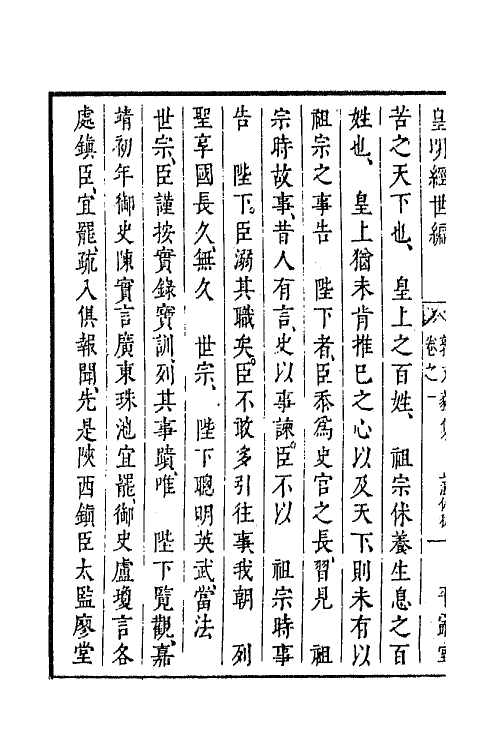 皇明經世編
卷之一
苦之天下也、皇上之百姓、祖宗休養生息之百
姓也、皇上猶未肯推已之心以及天下、則未有以
祖宗之事告　陛下者、臣忝爲史官之長、習見　祖
宗時故事、昔人有言、史以事諫、臣不以　祖宗時事
告　陛下、臣溺其職矣、臣不敢多引往事、我朝　列
聖享國長久、無久　世宗、陛下聰明英武、當法
世宗、臣謹按實錄寶訓、列其事蹟、唯　陛下覽觀、嘉
靖初年御史陳實言廣東珠池宜罷、御史盧瓊言各
處鎮臣、宜罷、疏入俱報聞、先是陝西鎮臣太監廖堂